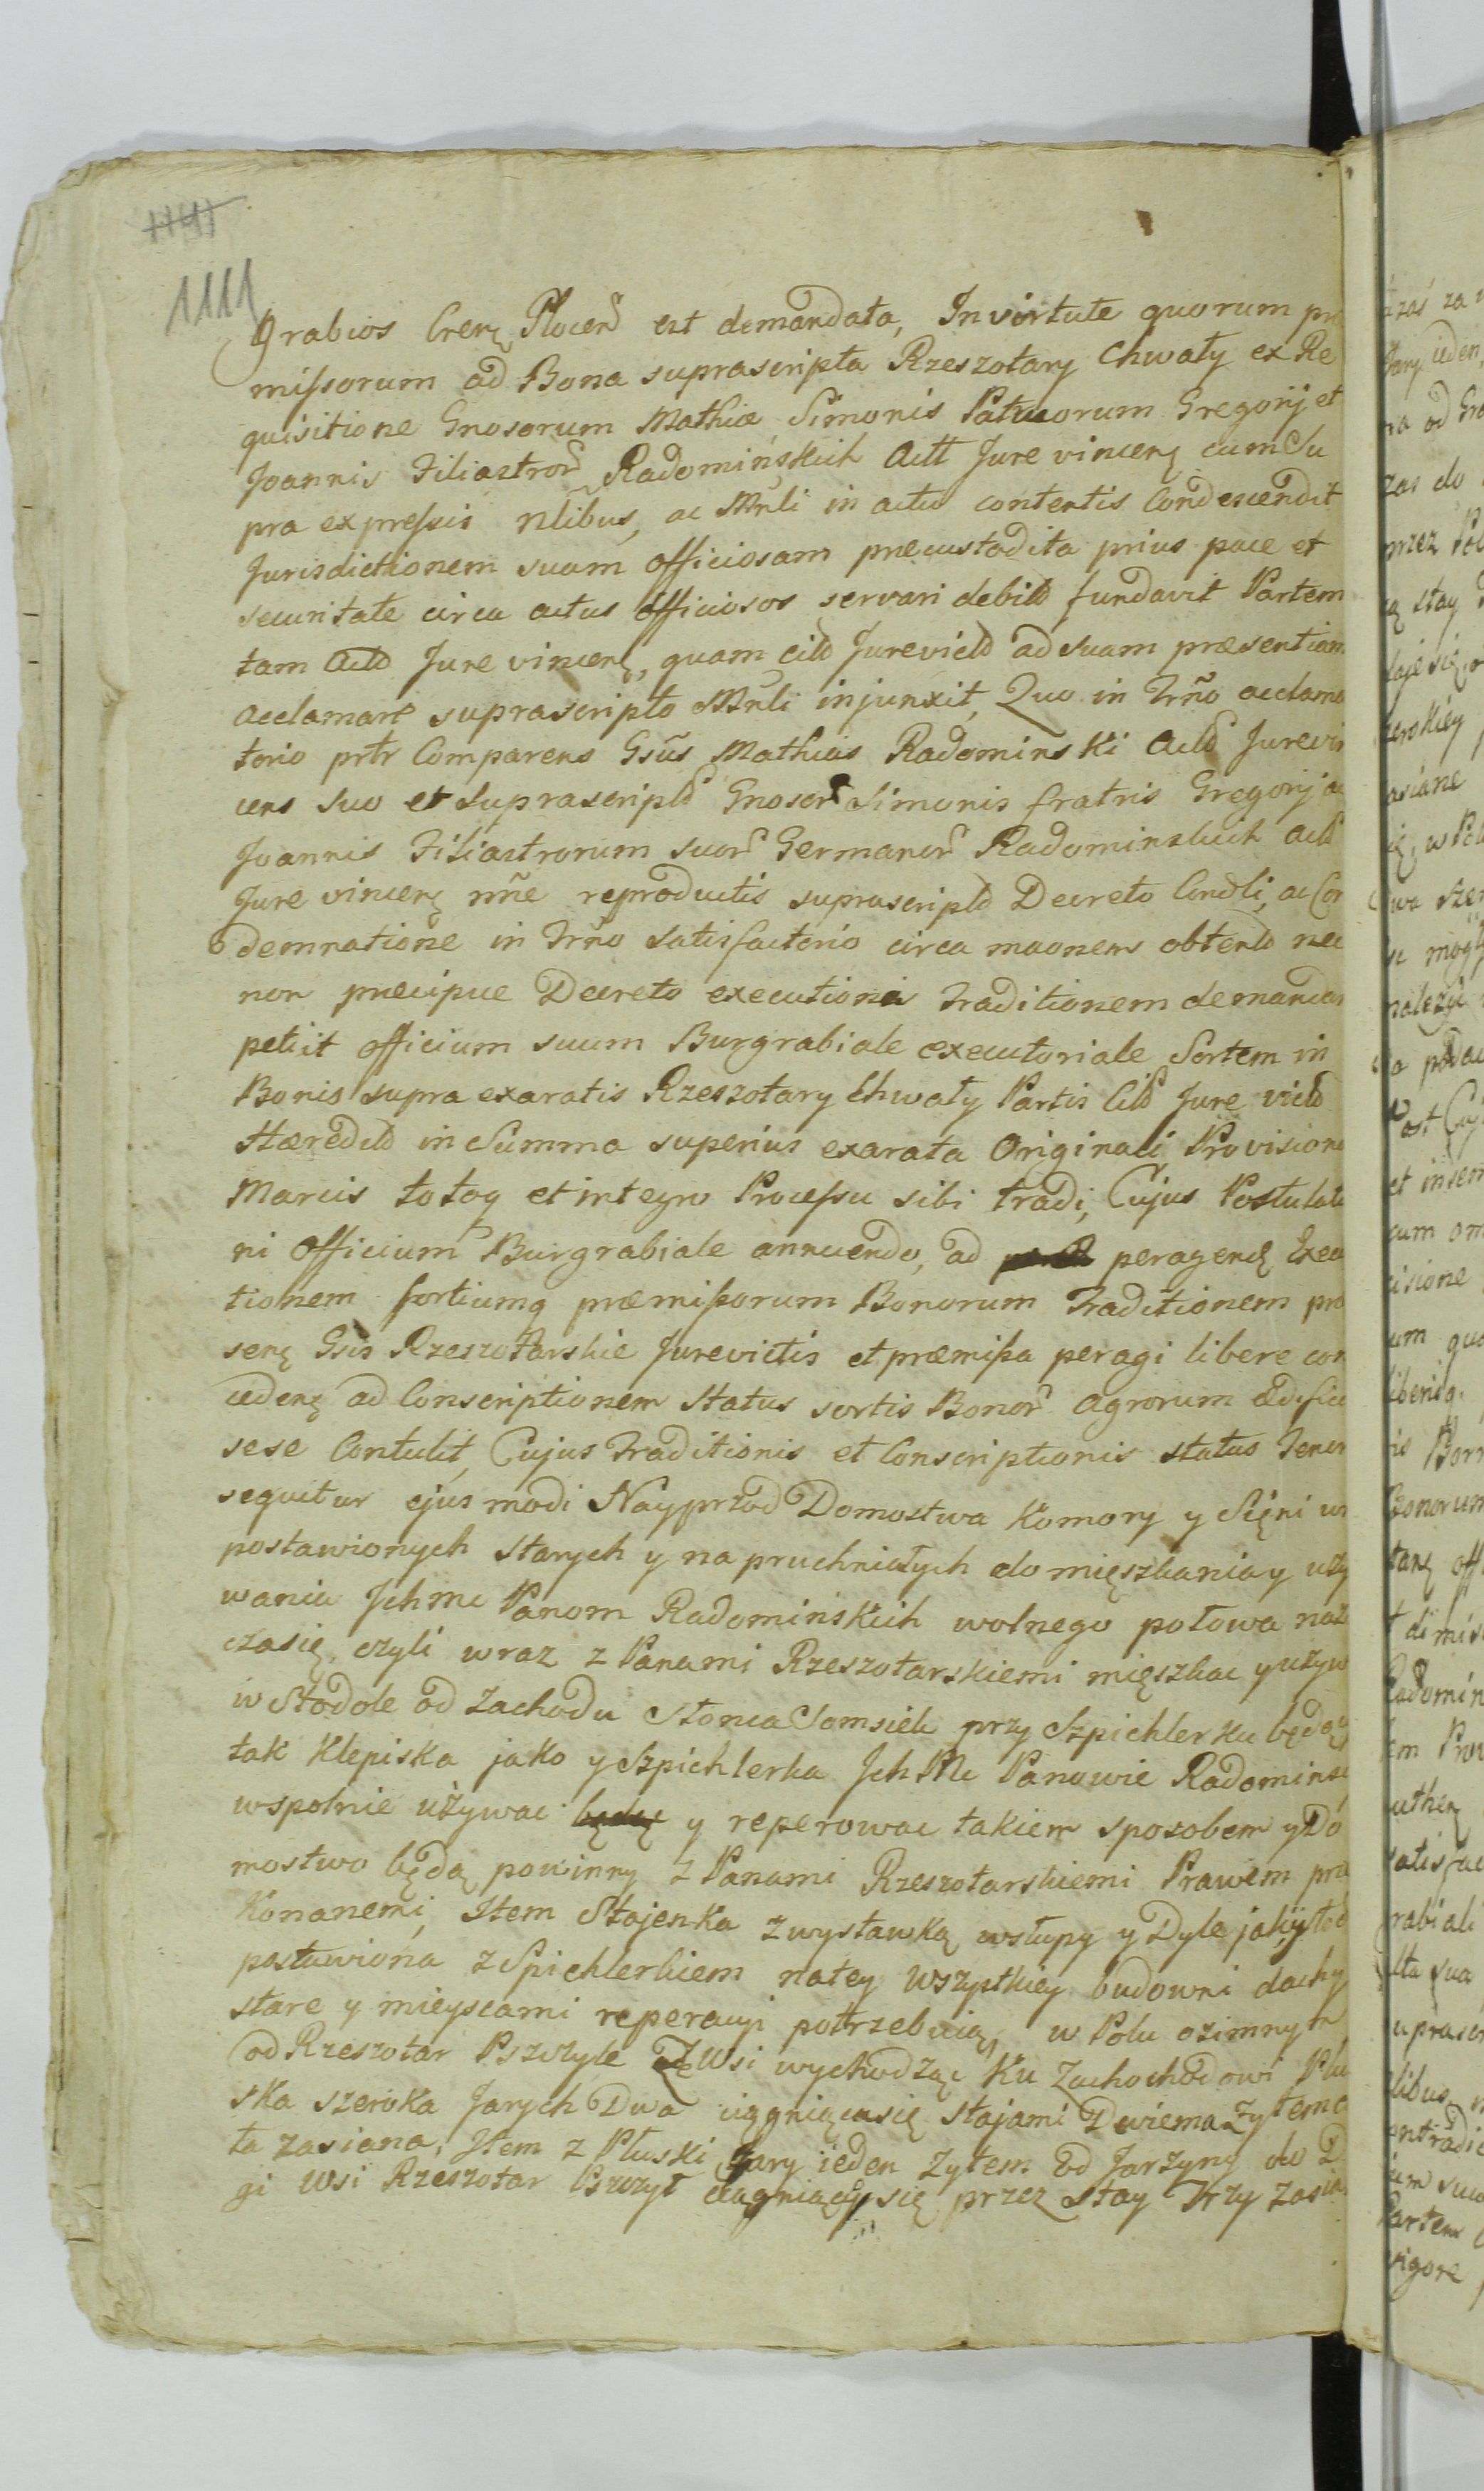 1111
grabios Crenę Plocen est demandata, In virtute quorum pre
missorum ad Bona suprascripta Rzeszotary Chwały ex Re
quisitione Gnosorum Mathiæ Simonis Patruorum Gregorij et
Joannis Filiastror Radomińskich Actt Jure vincenę cum Su
pra expressis Nlibus, ac Mnli in actu contentis Condescendit
Jurisdictionem suam officiosam præcustodita prius pace et
securitate circa actus officiosos servari debitd fundavit Partem
tam Actd Jure vincenę, quam citd Jurevictd ad suam præsentiam
acclamare suprascripto Mnli injunxit, Quo in Trño acclama
torio prtr Comparens Gsus Mathias Radominski Actd Jurevin
cens suo et Suprascriptd Gnosor Simonis fratris Gregorij ac
Joannis Filiastrorum suor Germanor Radominskich Actd
Jure vincenę nñe reproductis suprascriptd Decreto Condli, ac Con
demnatione in Trño Satisfactorio circa maonem obtentd nec
non præcipue Decreto executionis Traditionem demandan
petiit officium suum Burgrabiale executoriale Sortem in
Bonis supra exaratis Rzeszotary Chwały Partis Citd Jure victd
Hæreditd in Summa superius exarata Originali Provisione
Marcis totoq et integro Processu sibi tradi, Cujus Postulato
ni Officium Burgrabiale annuendo, ad peragenę Execu
tionem sortiumq præmissorum Bonorum Traditionem pro
senę Gsis Rzeszotarskie Jurevictis et præmissa peragi libere con
cedenę ad Conscriptionem Status sortis Bonor Agrorum Ædificio
sese Contulit, Cujus Traditionis et Conscriptionis status Tenor
sequitur ejusmodi Nayprzod Domostwa Komory y Sięni w
postawionych starych y na pruchniałych do mięszkania y uzy
wania Jchmc Panom Radomińskich wolnego połowa nazn
czasię, czyli wraz z Panami Rzeszotarskiemi mięszkac y używ
w Stodole od Zachodu Słonca Somsiek przy Szpichlerku będąy
tak Klepiska jako y Szpichlerka Jch Mc Panowie Radominsc
wspolnie używac będą y reperowac takiem sposobem y Do
mostwo będą powinny z Panami Rzeszotarskiemi Prawem prze
Konanemi, Item Stajenka z wystawką wstupy y Dyle jakÿ tod
postawiona z Spichlerkiem natey wszyptkiey budowni dachy
stare y mieyscami reperacyi potrzebuią, w Polu ozimnym
od Rzeszotar Pszczyle Zę Wsi wychodząc Ku Zachochodowi Plu
ska szeroka Jarych Dwa ciągniącasię stajami Dwiema Zytem ca
ta zasiana, Item z Pluski Jary ieden Zytem Od Jarzyny do D
gi Wsi Rzeszotar Pszczył ciągniący się przez Stay Trzy Zasia